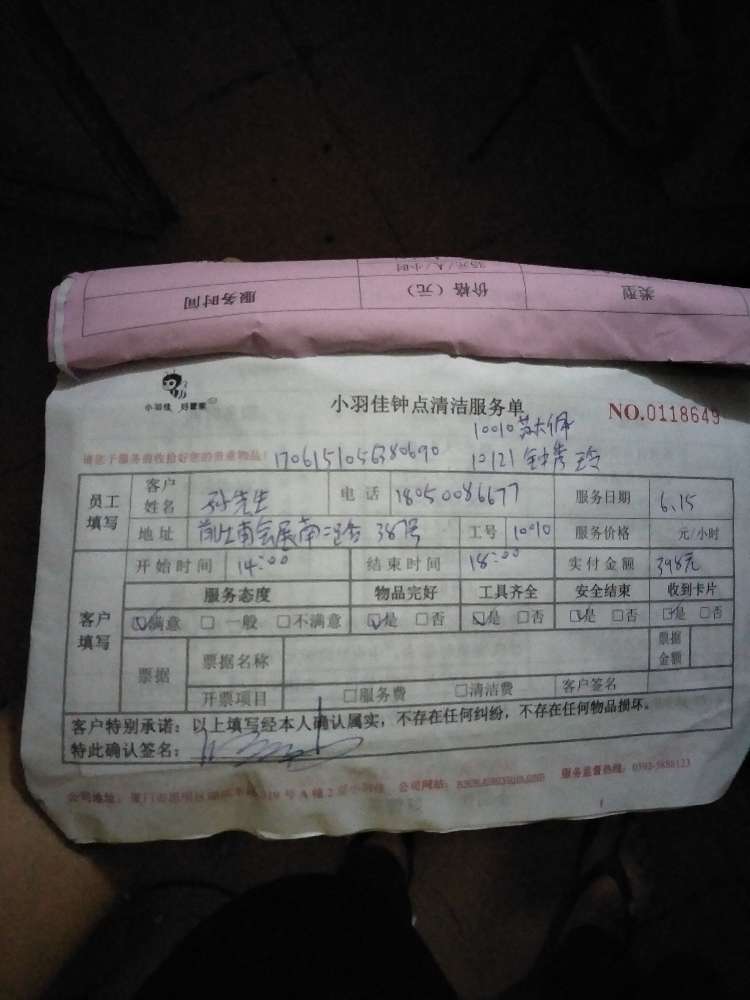 35元/人/小时
类型 价格（元） 服务时间
小羽佳 好管家
小羽佳钟点清洁服务单
NO.0118649
10010 苏
请您于服务前收拾好您的贵重物品！ 1706151056380690 10121 钟秀玲
员工填写 客户姓名 孙先生 电话 18050086677 服务日期 6.15
地址 会展南二路 387号 工号 10010 服务价格 元/小时
客户填写 开始时间 14:00 结束时间 18:00 实付金额 398元
服务态度 物品完好 工具齐全 安全结束 收到卡片
☑满意 □一般 □不满意 ☑是 □否 ☑是 □否 ☑是 □否 ☑是 □否
票据 票据名称 票据金额
开票项目 □服务费 □清洁费 客户签名
客户特别承诺：以上填写经本人确认属实，不存在任何纠纷，不存在任何物品损坏。
特此确认签名：
公司地址：厦门市思明区 319号A幢2层小羽佳 公司网站： 服务监督热线：0592-5888123